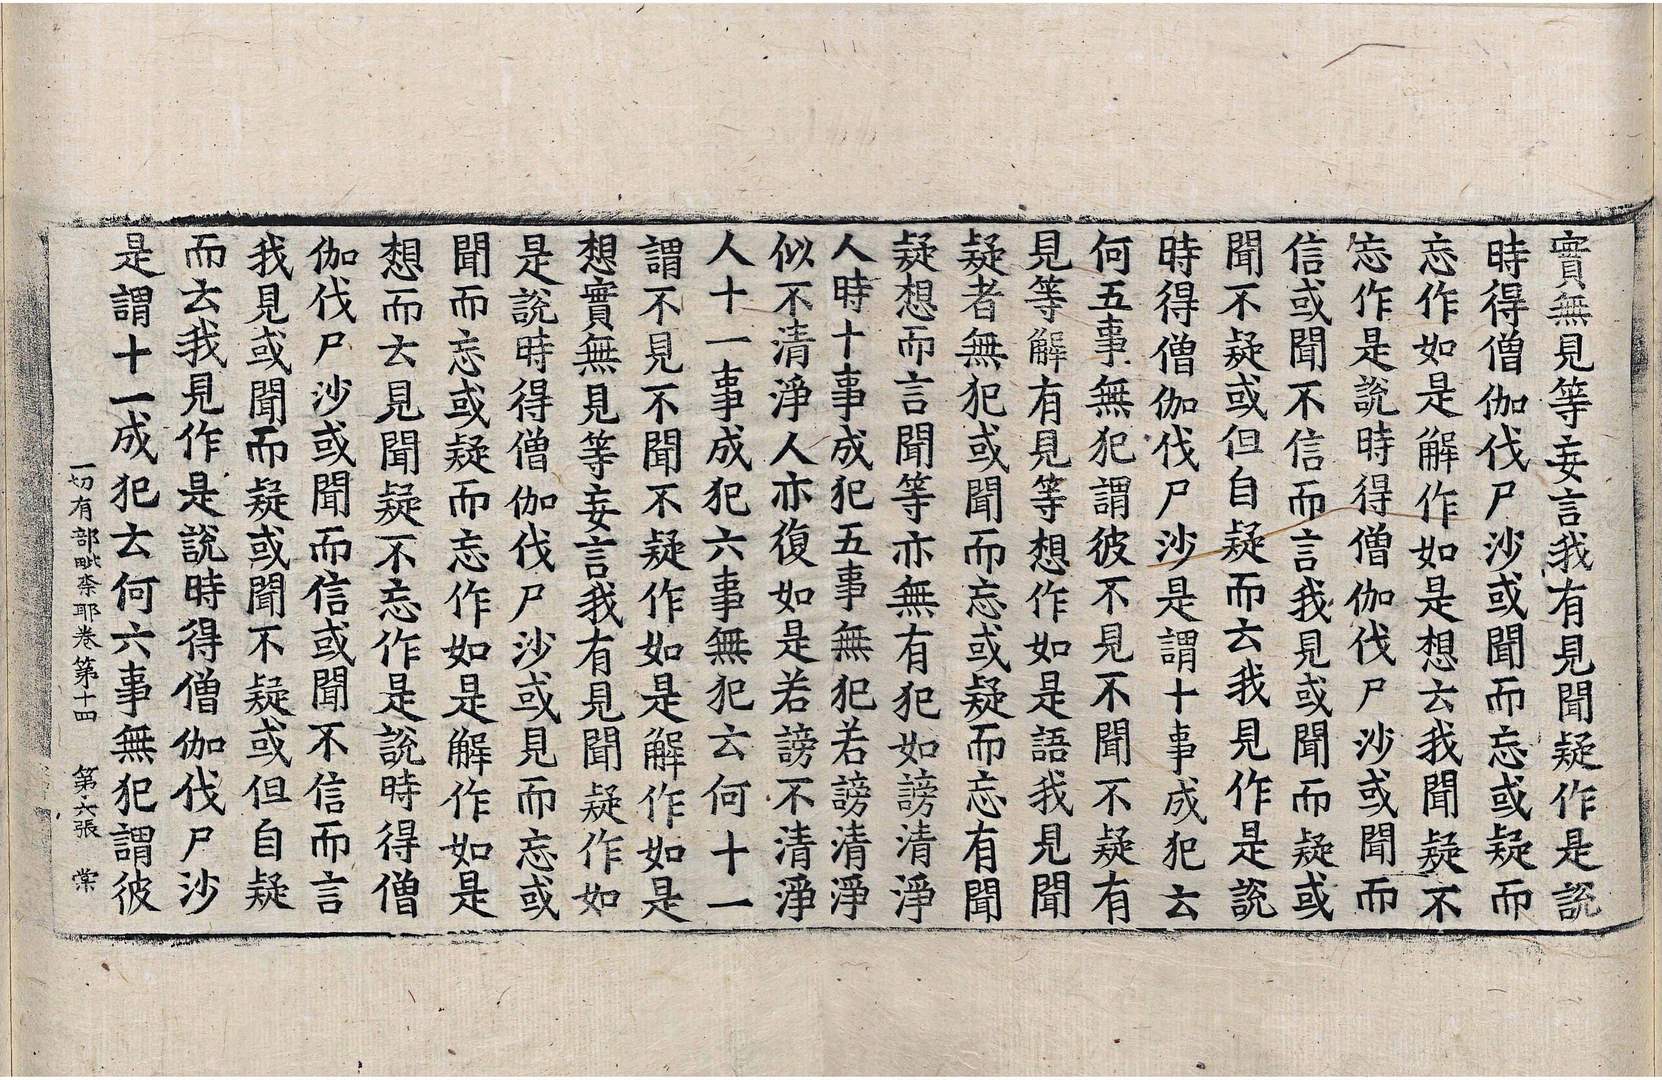 實無見等妄言我有見聞疑作是說
時得僧伽伐尸沙或聞而忘或疑而
忘作如是解作如是想云我聞疑不
忘作是說時得僧伽伐尸沙或聞而
信或聞不信而言我見或聞而疑或
聞不疑或但自疑而云我見作是說
時得僧伽伐尸沙是謂十事成犯云
何五事無犯謂彼不見不聞不疑有
見等解有見等想作如是語我見聞
疑者無犯或聞而忘或疑而忘有聞
疑想而言聞等亦無有犯如謗清淨
人時十事成犯五事無犯若謗清淨
似不清淨人亦復如是若謗不清淨
人十一事成犯六事無犯云何十一
謂不見不聞不疑作如是解作如是
想實無見等妄言我有見聞疑作如
是說時得僧伽伐尸沙或見而忘或
聞而忘或疑而忘作如是解作如是
想而云見聞疑不忘作是說時得僧
伽伐尸沙或聞而信或聞不信而言
我見或聞而疑或聞不疑或但自疑
而云我見作是說時得僧伽伐尸沙
是謂十一成犯云何六事無犯謂彼
一切有部毗奈耶卷第十四 第六張 棠